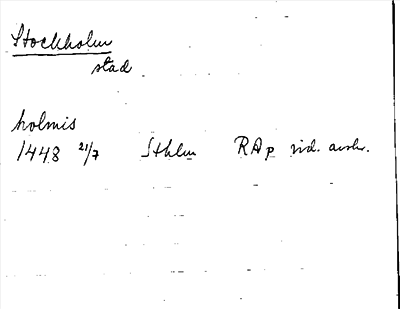 Stockholm
stad
holmis
1448 21/7 Sthlm RAp vid. avskr.